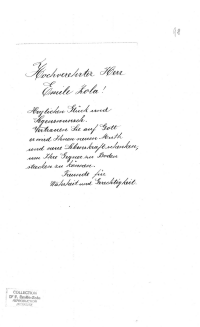 Hochverehrter Herr
Emile Zola!
Herzlichen Glück und
Segenswunsch.
Vertrauen Sie auf Gott
er wird Ihnen neuen Muth
und neue Lebenskraft schenken,
um Ihre Gegner zu Boden
zu können.
Freunde für
Wahrheit und Gerechtigkeit
COLLECTION